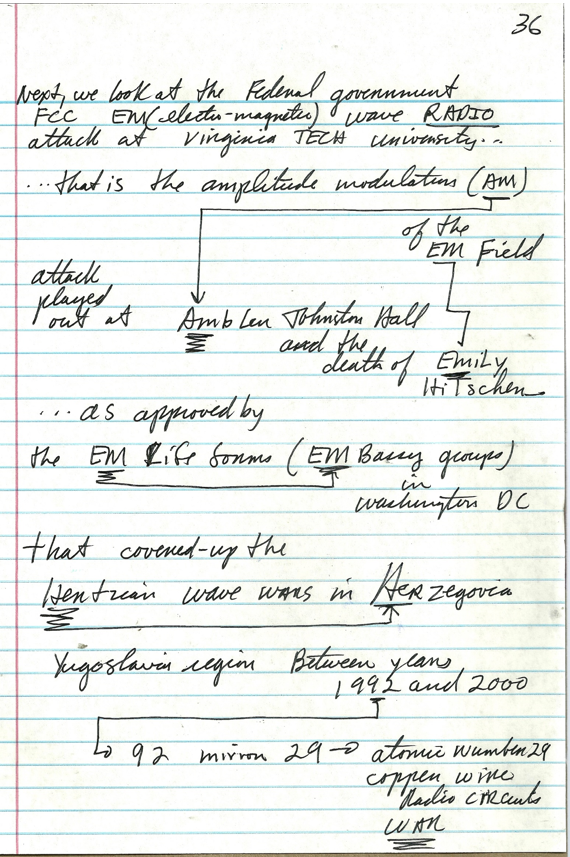 36
Next, we look at the Federal government
FCC EM (electro-magnetic) wave RADIO
attack at Virginia TECH university...
...that is the amplitude modulation (AM)
of the
EM Field
attack
played
out at Ambler Johnston Hall
and the
death of Emily
HiTschen
...as approved by
the EM Life forms (EMBassy groups)
in
washington DC
that covered-up the
Hertzian wave wars in Herzegovia
Yugoslavia region Between years
1992 and 2000
92 mirror 29 → atomic number 29
copper wire
Radio CIRCuits
WAR